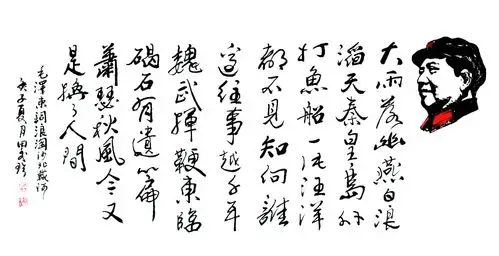 大雨落幽燕白浪
滔天秦皇島外
打魚船一片汪洋
都不見知向誰
邊往事越千年
魏武揮鞭東臨
碣石有遺篇
蕭瑟秋風今又
是換了人間
毛澤東詞浪淘沙北戴河
庚子夏月田